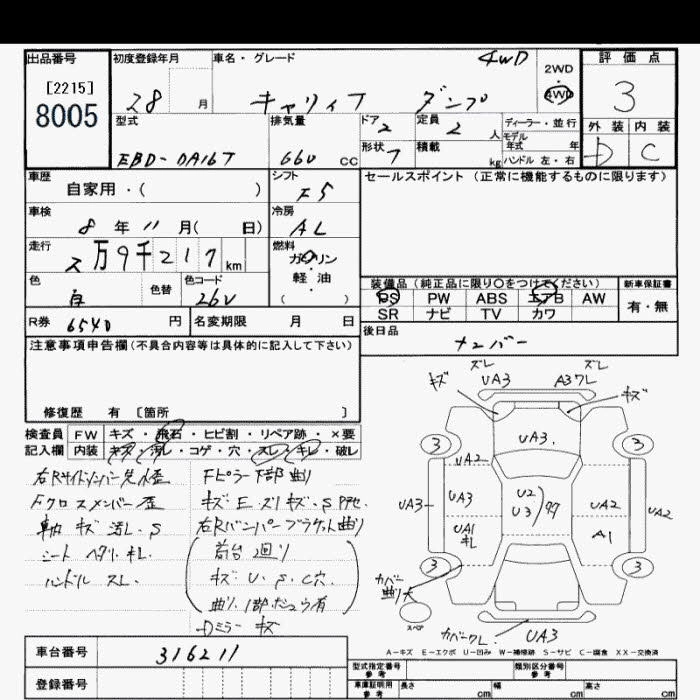 出品番号
[2215]
8005
初度登録年月
28 月
車名・グレード
4WD
キャリィT ダンプ
2WD
4WD
評価点
3
外装 内装
D C
型式
EBD-DA16T
排気量
660 cc
ドア 2
形状 7
定員 2 人
積載 kg
ディーラー・並行
モデル
年式 年
ハンドル 左・右
車歴
自家用・( )
シフト
F5
セールスポイント (正常に機能するものに限ります)
車検
8 年 11 月( 日)
冷房
AL
走行
2万9千217 km
燃料
ガソリン
・
軽油
( )
色
白
色替
色コード
26U
装備品 (純正品に限り〇をつけてください)
PS PW ABS エアB AW
SR ナビ TV カワ
新車保証書
有・無
R券 6540 円
名変期限 月 日
後日品
ナンバー
注意事項申告欄(不具合内容等は具体的に記入して下さい)
修復歴 有 [箇所 ]
検査員 FW キズ・飛石・ヒビ割・リペア跡・×要
記入欄 内装 キズ・汚レ・コゲ・穴・スレ・キレ・破レ
右Rサイドメンバー先歪
Fクロスメンバー歪
シート ヘタリ・キレ
ハンドル スレ
Fピラー下部曲り
右Rバンパーブラケット曲り
荷台 凹り
キズ・U・S・C穴
Dミラー キズ
ズレ ズレ
キズ UA3 A3ワレ キズ
3 UA3 3
UA2
UA3 UA3 U2 UA2 UA2
U3
UA1 A1
キレ
3 3
カバー
曲り大
スペア
カバーワレ UA3
A-キズ E-エクボ U-凹み W-補修跡 S-サビ C-腐食 XX-交換済
車台番号 316211
登録番号
型式指定番号
参考
類別区分番号
参考
車庫証明用
参考
長さ cm 幅 cm 高さ cm